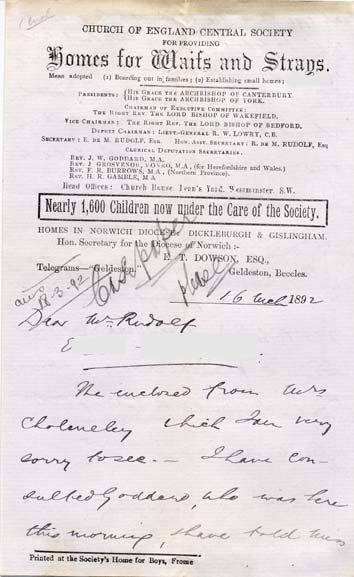 CHURCH OF ENGLAND CENTRAL SOCIETY
FOR PROVIDING
Homes for Waifs and Strays.
Mean adopted (1) Boarding out in families; (2) Establishing small homes;
PRESIDENTS: HIS GRACE THE ARCHBISHOP OF CANTERBURY.
HIS GRACE THE ARCHBISHOP OF YORK.
CHAIRMAN OF EXECUTIVE COMMITTEE:
THE RIGHT REV. THE LORD BISHOP OF WAKEFIELD.
VICE CHAIRMAN: THE RIGHT REV. THE LORD BISHOP OF BEDFORD.
DEPUTY CHAIRMAN: LIEUT.-GENERAL R. W. LOWRY, C.B.
SECRETARY: E. DE M. RUDOLF, ESQ. HON. ASST. SECRETARY: R. DE M. RUDOLF, ESQ
CLERICAL DEPUTATION SECRETARIES.
REV. J. W. GODDARD, M.A.
REV. J GROSVENOR, M.A., (for Herefordshire and Wales.)
REV. F. R. BURROWS, M.A., (Northern Province).
REV. H. R. GAMBLE, M A
Head Offices: Church House, Dean's Yard, Westminster, S.W.
Nearly 1,600 Children now under the Care of the Society.
HOMES IN NORWICH DIOCESE: DICKLEBURGH & GISLINGHAM.
Hon. Secretary for the Diocese of Norwich :-
E. T. DOWSON, ESQ.,
Telegrams—"Geldeston." Geldeston, Beccles.
18-3-92
please
16 1892
Dear Mr Rudolf
E
The enclosed from Mrs
Cholmeley which I am very
sorry to see. — I have con-
sulted Goddard, who was here
this morning, & have told Miss
Printed at the Society's Home for Boys, Frome